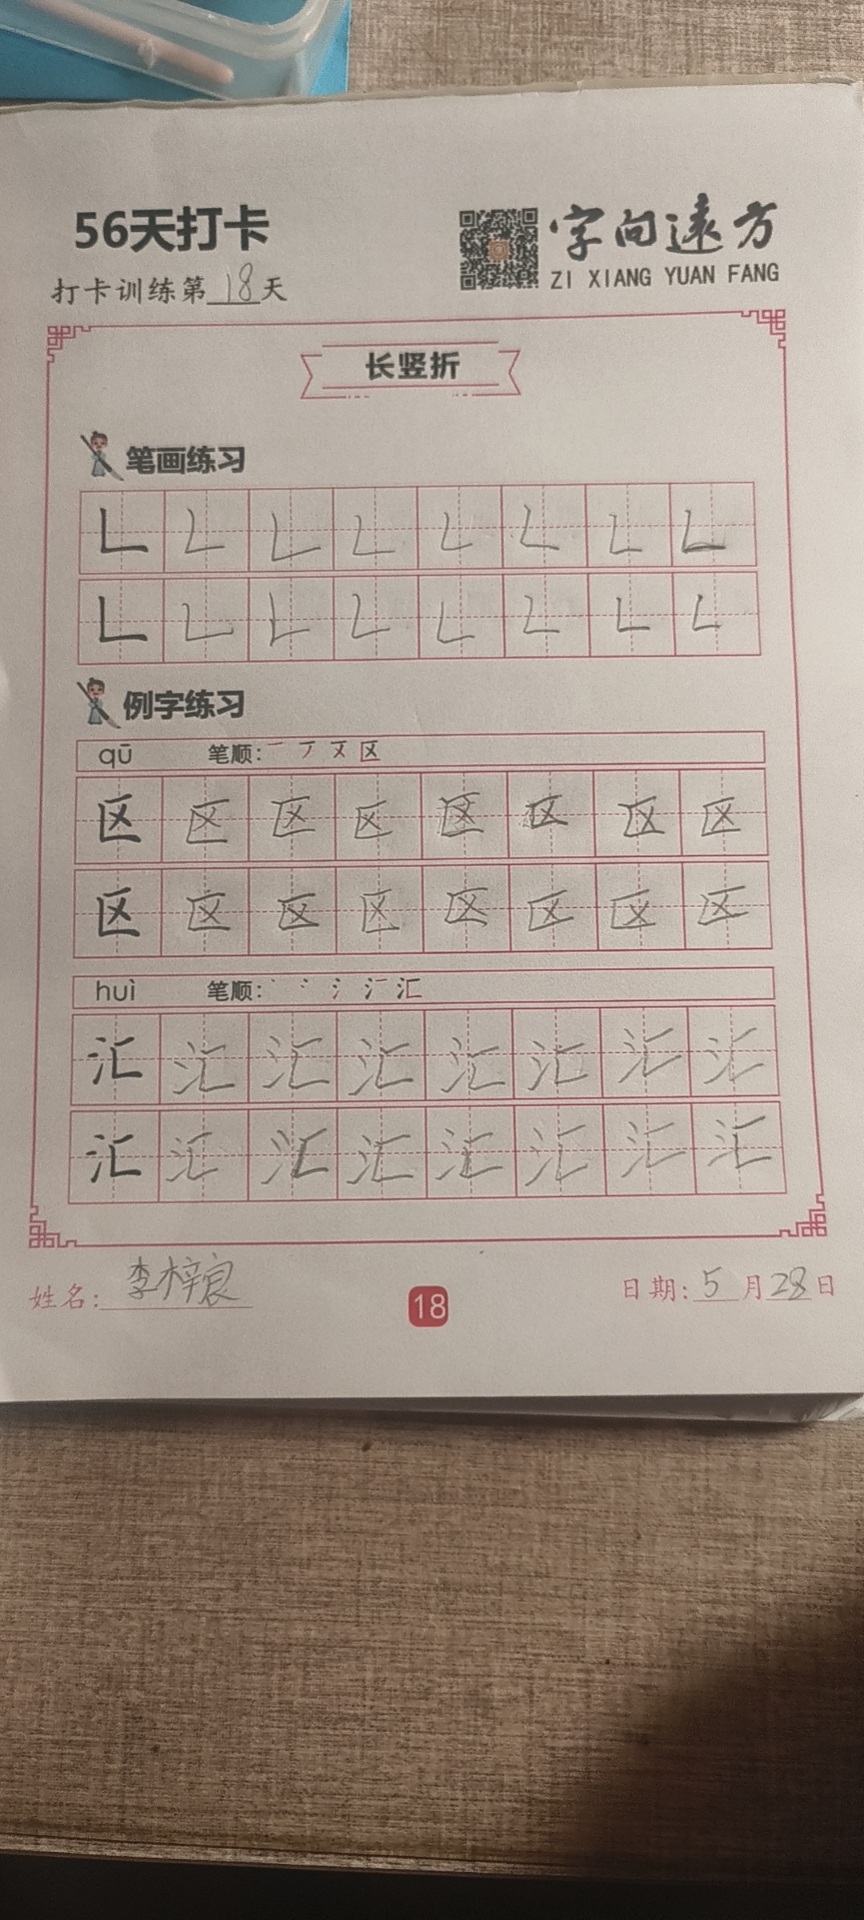 56天打卡
字向远方
ZI XIANG YUAN FANG
打卡训练第18天
长竖折
笔画练习
𠃊 𠃊 𠃊 𠃊 𠃊 𠃊 𠃊 𠃊
𠃊 𠃊 𠃊 𠃊 𠃊 𠃊 𠃊 𠃊
例字练习
qū 笔顺: 区
区 区 区 区 区 区 区 区
区 区 区 区 区 区 区 区
huì 笔顺: 汇
汇 汇 汇 汇 汇 汇 汇 汇
汇 汇 汇 汇 汇 汇 汇 汇
姓名: 李梓宸
18
日期: 5月28日